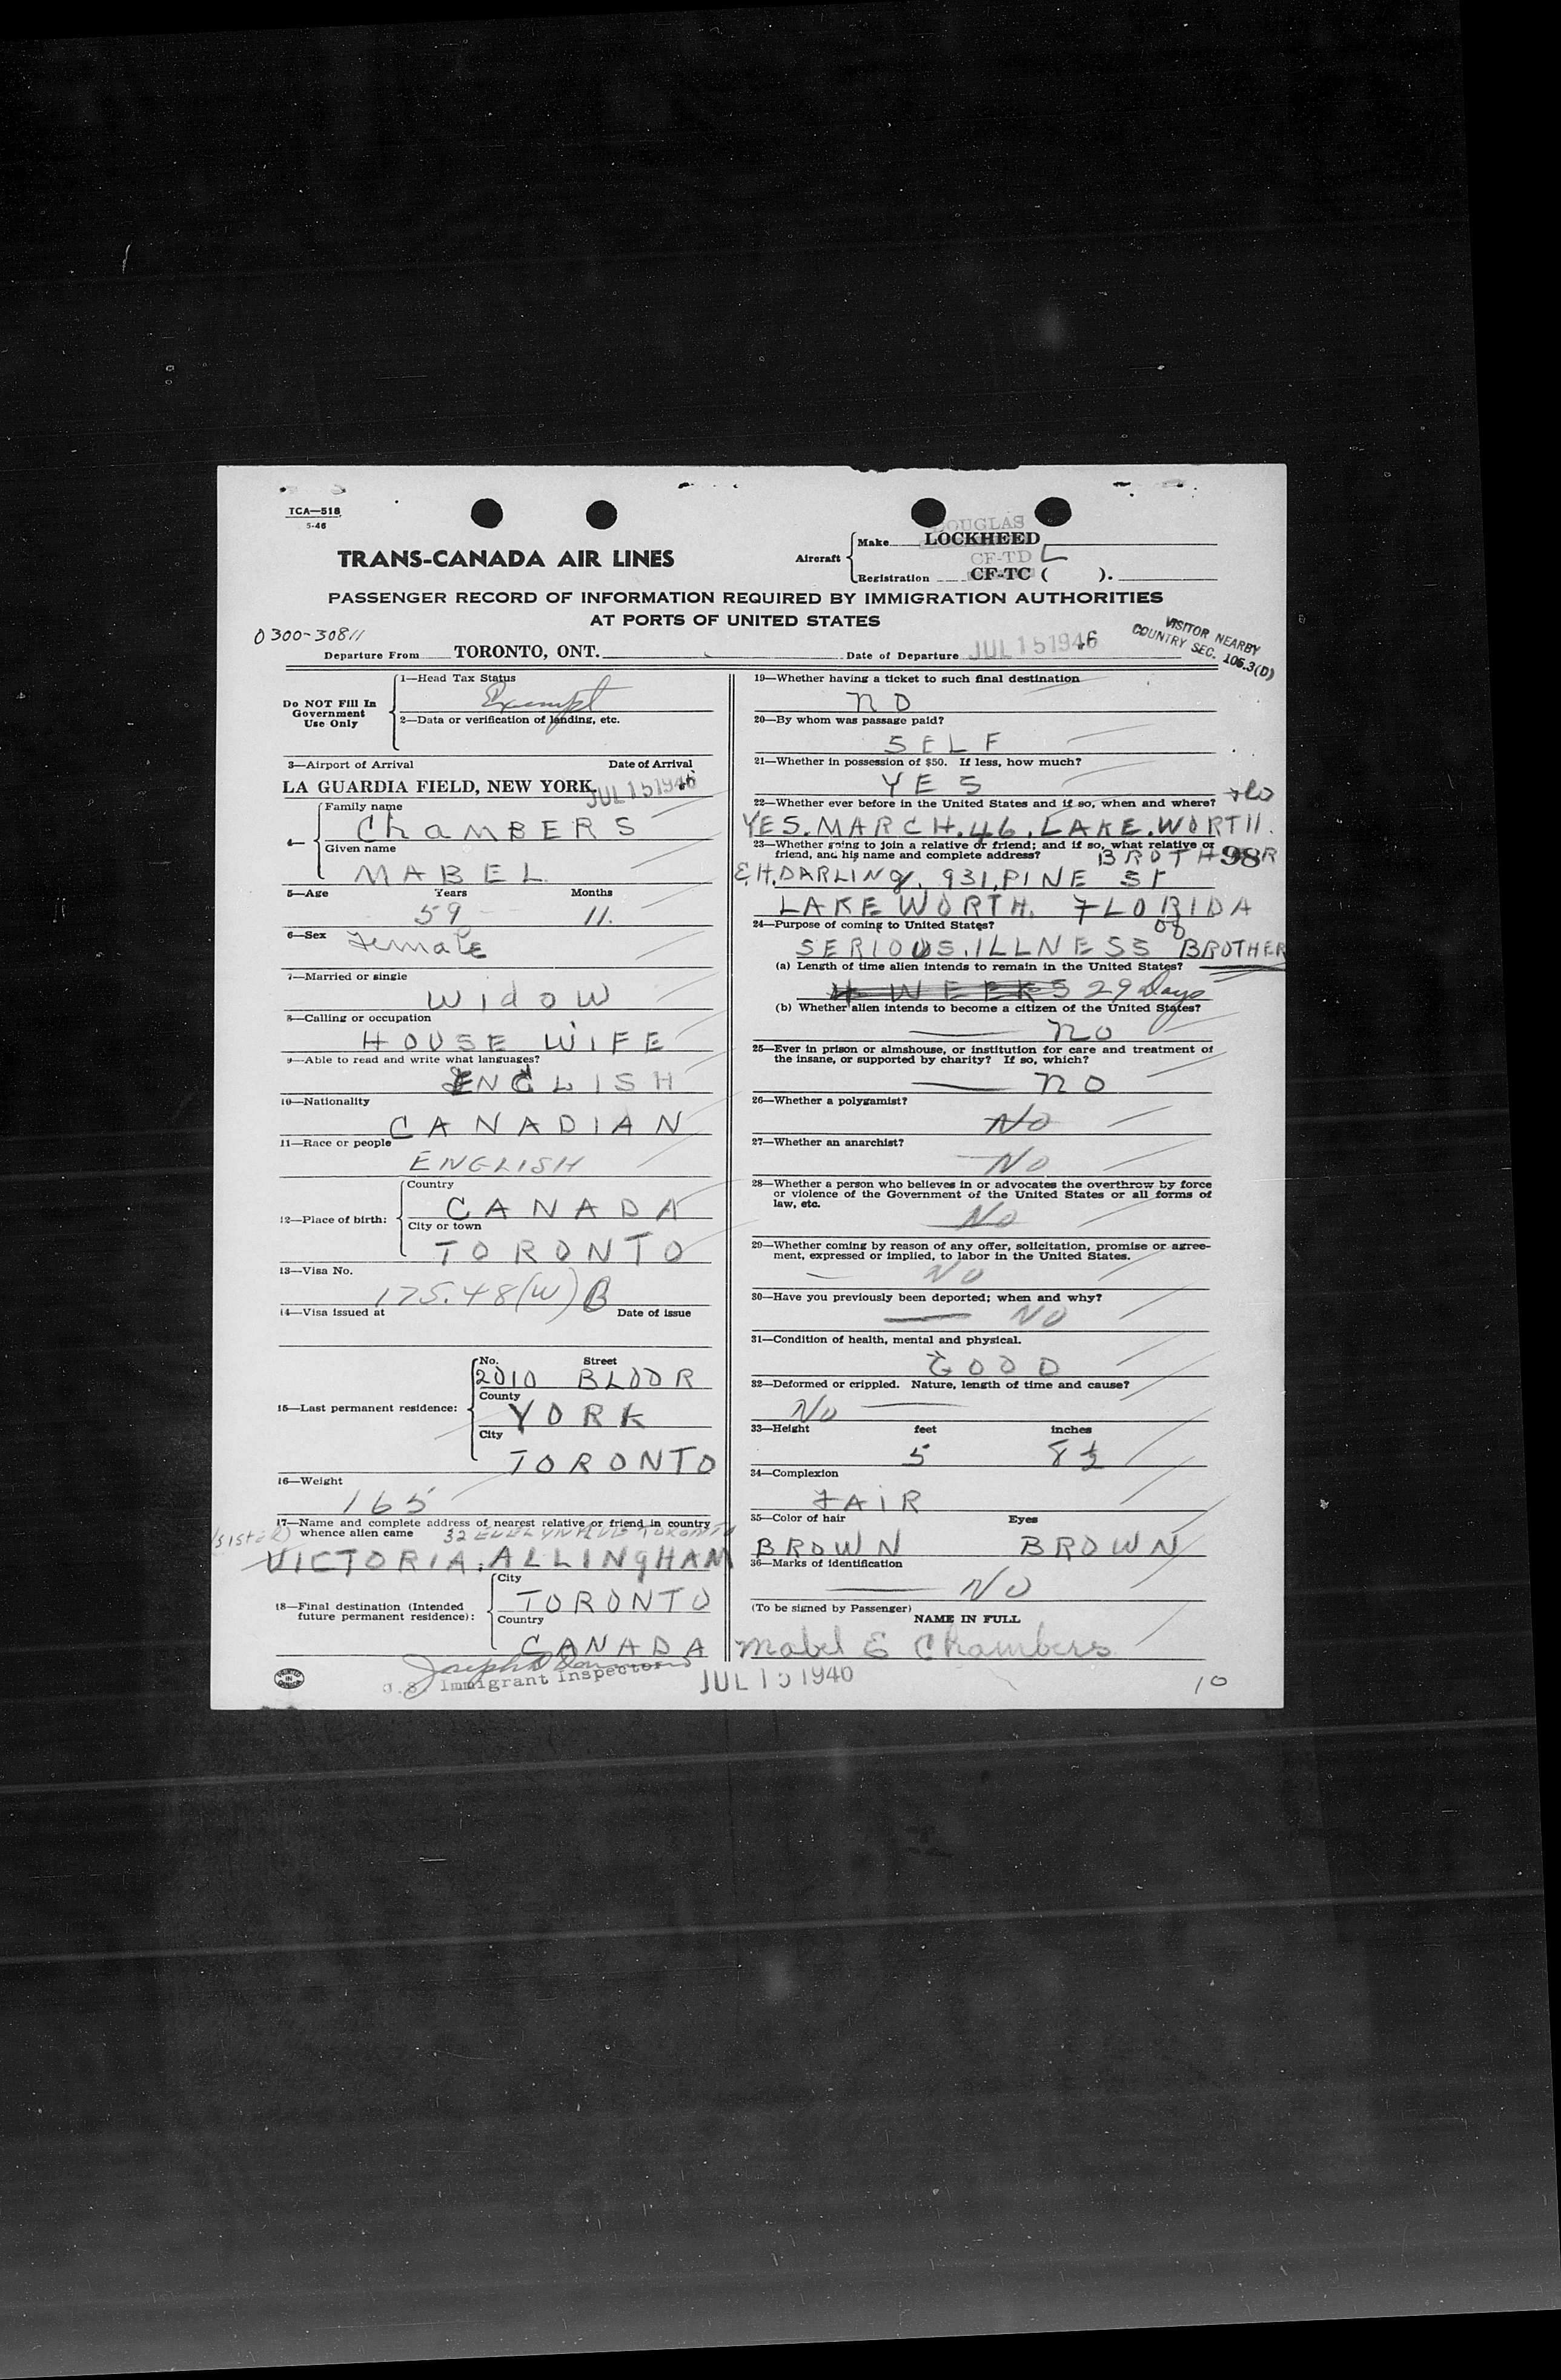 TCA—518
5-46
TRANS-CANADA AIR LINES
DOUGLAS
Aircraft Make LOCKHEED
CF-TD L
Registration CF-TC ( ).
PASSENGER RECORD OF INFORMATION REQUIRED BY IMMIGRATION AUTHORITIES
AT PORTS OF UNITED STATES
0300-30811
VISITOR NEARBY
COUNTRY SEC. 106.3(D)
Departure From TORONTO, ONT. Date of Departure JUL 15 1946
Do NOT Fill In
Government
Use Only
1—Head Tax Status
Exempt
2—Data or verification of landing, etc.
3—Airport of Arrival Date of Arrival
LA GUARDIA FIELD, NEW YORK. JUL 15 1946
4— Family name
ChAMBERS
Given name
MABEL
5—Age Years Months
59 11.
6—Sex Female
7—Married or single
WIdOW
8—Calling or occupation
HOUSE WIFE
9—Able to read and write what languages?
ENGLISH
10—Nationality
CANADIAN
11—Race or people
ENGLISH
12—Place of birth:
Country
CANADA
City or town
TORONTO
13—Visa No.
175.48(W) B
14—Visa issued at Date of issue
15—Last permanent residence:
No. Street
2010 BLOOR
County
YORK
City
TORONTO
16—Weight
165
17—Name and complete address of nearest relative or friend in country
whence alien came 32 EVELYN AVE TORONTO
(sister)
VICTORIA. ALLINGHAM
18—Final destination (Intended
future permanent residence):
City
TORONTO
Country
CANADA
U.S. Immigrant Inspector
19—Whether having a ticket to such final destination
NO
20—By whom was passage paid?
SELF
21—Whether in possession of $50. If less, how much?
YES
22—Whether ever before in the United States and if so, when and where?
YES. MARCH. 46. LAKE. WORTH.
23—Whether going to join a relative or friend; and if so, what relative or
friend, and his name and complete address? BROTHER
98
E.H. DARLINg. 931. PINE ST
LAKE WORTH. FLORIDA
24—Purpose of coming to United States?
SERIOUS. ILLNESS of BROTHER
(a) Length of time alien intends to remain in the United States?
4 WEEKS 29 Days
(b) Whether alien intends to become a citizen of the United States?
NO
25—Ever in prison or almshouse, or institution for care and treatment of
the insane, or supported by charity? If so, which?
NO
26—Whether a polygamist?
NO
27—Whether an anarchist?
NO
28—Whether a person who believes in or advocates the overthrow by force
or violence of the Government of the United States or all forms of
law, etc.
NO
29—Whether coming by reason of any offer, solicitation, promise or agree-
ment, expressed or implied, to labor in the United States.
NO
30—Have you previously been deported; when and why?
NO
31—Condition of health, mental and physical.
GOOD
32—Deformed or crippled. Nature, length of time and cause?
No
33—Height feet inches
5 8½
34—Complexion
FAIR
35—Color of hair Eyes
BROWN BROWN
36—Marks of identification
NO
(To be signed by Passenger)
NAME IN FULL
Mabel E Chambers
JUL 15 1946
10
PRINTED IN CANADA